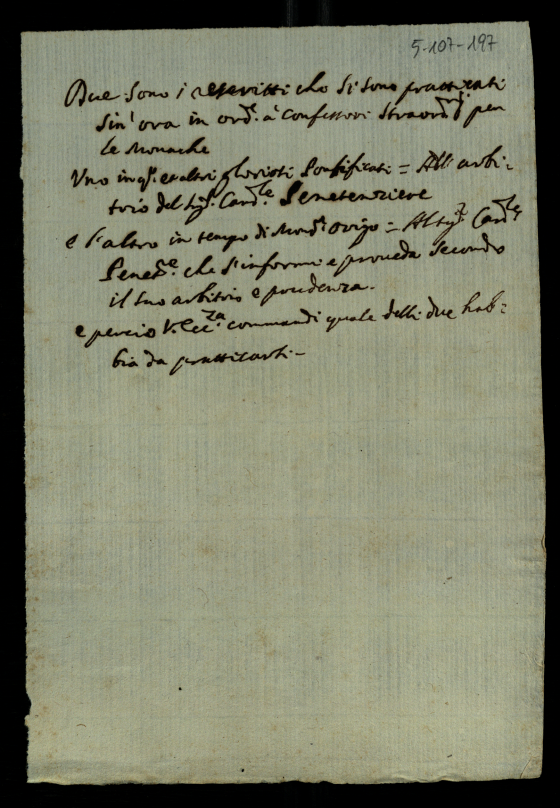 5-107-197
Due sono i rescritti che si sono pratticati
sin' ora in ord.e à Confessori Straord.rj per
le Monache
Uno in q.o et altri gloriosi Pontificati = All' arbi-
trio del Sig.r Card.le Penetenziere
e l'altro in tempo di Mons.r = Al Sig.r Card.le
Penet.e che s'informi e proveda secondo
il suo arbitrio e prudenza.
e perciò V. Ecc.za commandi quale delli due hab-
bia da pratticarsi.-